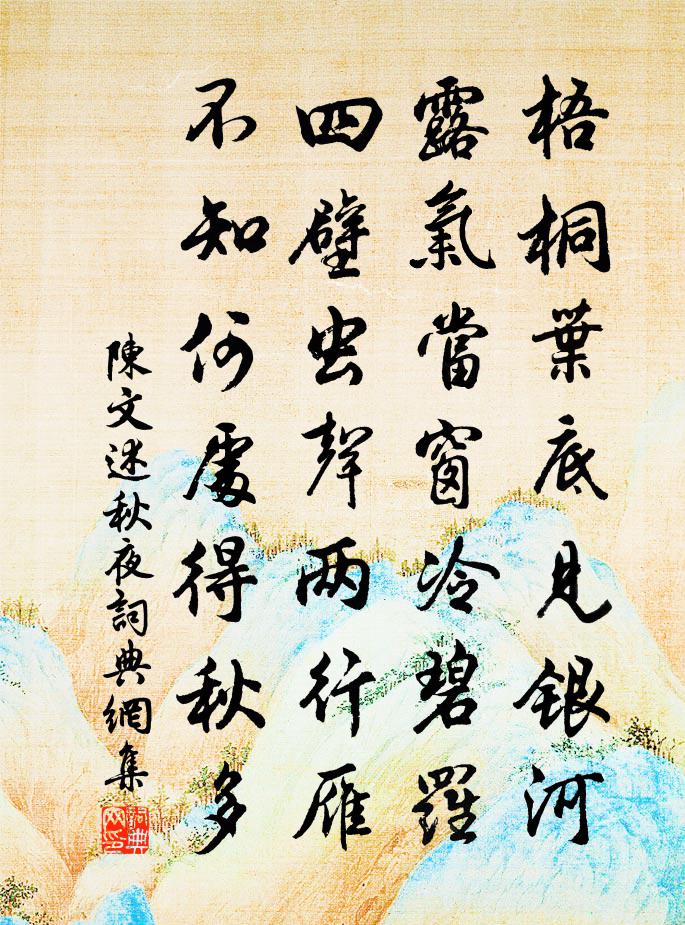 梧桐葉底見銀河
露氣當窗冷碧羅
四壁虫聲两行雁
不知何處得秋多
陳文述秋夜詞典網集
詞典网印